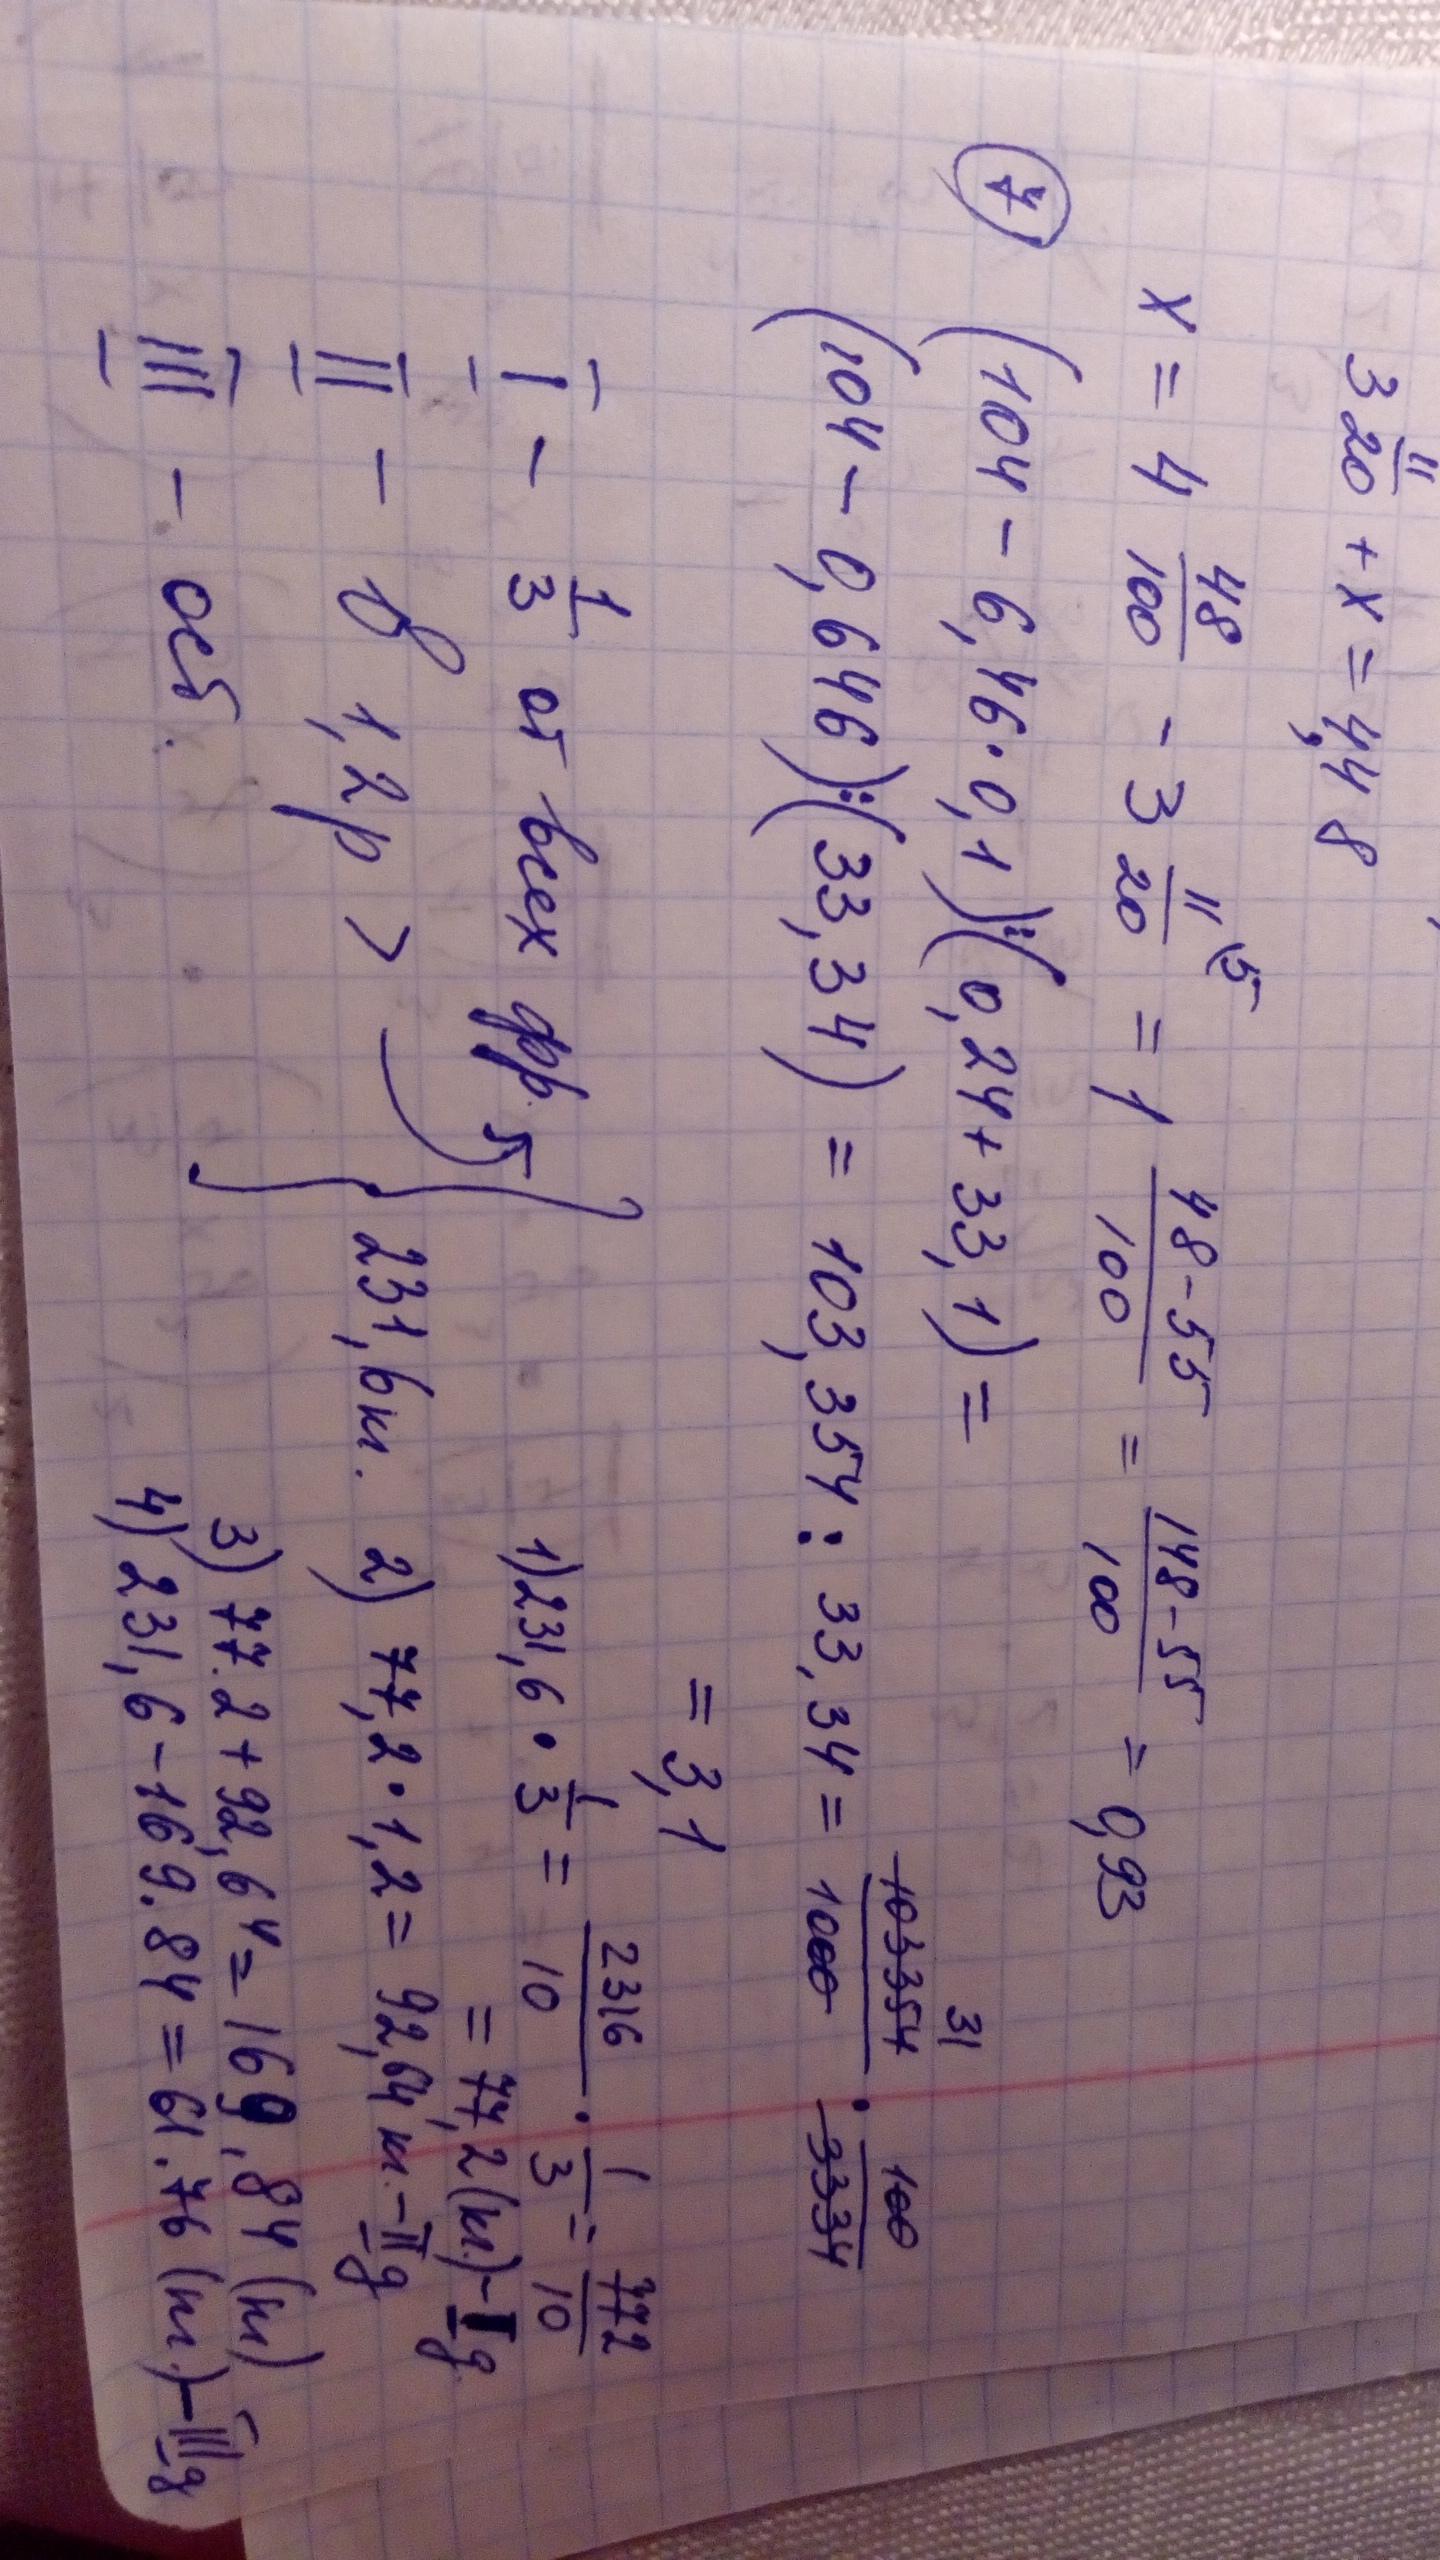 3 11/20 + x = 4,48
x = 4 48/100 - 3 11/20 (5 = 1 48-55/100 = 148-55/100 = 0,93
7 (104 - 6,46 · 0,1) : (0,24 + 33,1) =
(104 - 0,646) : (33,34) = 103,354 : 33,34 = 103354/1000 · 100/3334 31
= 3,1
I - 1/3 от всех фр.
II - в 1,2 р >
III - ост.
231,6 м.
1) 231,6 · 1/3 = 2316/10 · 1/3 = 772/10
= 77,2 (м.) - I д
2) 77,2 · 1,2 = 92,64 м. - II д
3) 77.2 + 92,64 = 169,84 (м)
4) 231,6 - 169.84 = 61.76 (м.) - III д